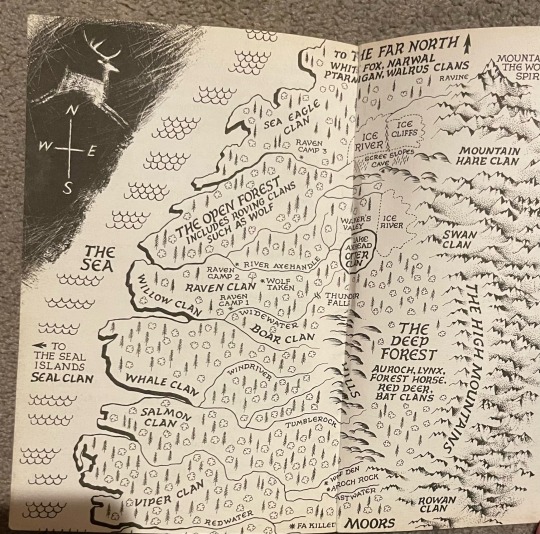 N
W E
S
TO THE FAR NORTH
WHITE FOX, NARWAL
PTARMIGAN, WALRUS CLANS
RAVINE
SEA EAGLE
CLAN
RAVEN
CAMP 3
ICE
RIVER
ICE
CLIFFS
SCREE SLOPES
CAVE
MOUNTAIN
HARE CLAN
THE OPEN FOREST
INCLUDES ROVING CLANS
SUCH AS WOLF
ICE
RIVER
OTTER
CLAN
SWAN
CLAN
THE
SEA
RIVER AXEHANDLE
RAVEN
CAMP 2
RAVEN CLAN
WOLF
TAKEN
RAVEN
CAMP 1
WILLOW CLAN
THUNDER
FALLS
WIDEWATER
BOAR CLAN
THE
DEEP
FOREST
AUROCH, LYNX,
FOREST HORSE,
RED DEER,
BAT CLANS
THE HIGH MOUNTAINS
TO
THE SEAL
ISLANDS
SEAL CLAN
WINDRIVER
WHALE CLAN
SALMON
CLAN
TUMBLEROCK
VIPER CLAN
DEN
ROCK
REDWATER
FA KILLED
MOORS
ROWAN
CLAN